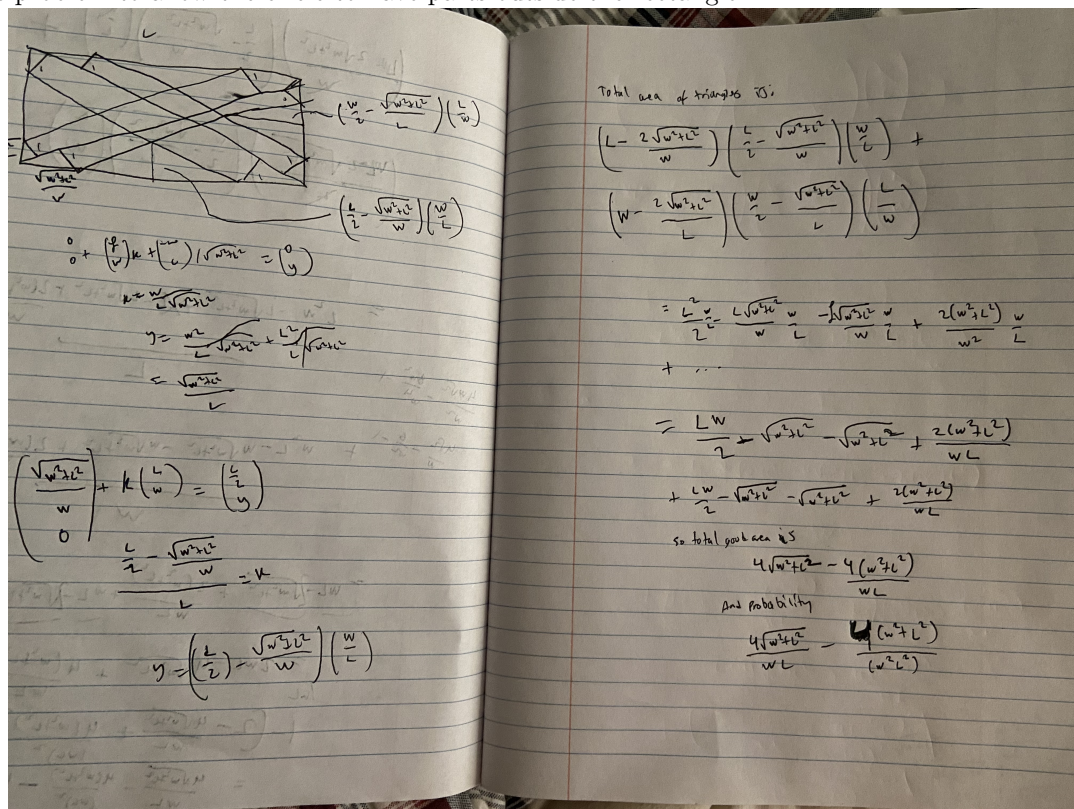 L
1
1
1
1
1
1
\left(\frac{w}{2} - \frac{\sqrt{w^2+L^2}}{L}\right)\left(\frac{L}{w}\right)
\frac{\sqrt{w^2+L^2}}{L}
\left(\frac{L}{2} - \frac{\sqrt{w^2+L^2}}{W}\right)\left(\frac{W}{L}\right)
y = \frac{w^2}{L}\sqrt{w^2+L^2} + \frac{L^2}{L}/\sqrt{w^2+L^2}
= \frac{\sqrt{w^2+L^2}}{L}
\begin{pmatrix} \frac{\sqrt{w^2+L^2}}{w} \\ 0 \end{pmatrix} + k\begin{pmatrix} L \\ w \end{pmatrix} = \begin{pmatrix} \frac{L}{2} \\ y \end{pmatrix}
\frac{\frac{L}{2} - \frac{\sqrt{w^2+L^2}}{w}}{L} = k
y = \left(\left(\frac{L}{2}\right) - \frac{\sqrt{w^2+L^2}}{W}\right)\left(\frac{W}{L}\right)
Total area of triangles is:
\left(L - \frac{2\sqrt{w^2+L^2}}{w}\right)\left(\frac{L}{2} - \frac{\sqrt{w^2+L^2}}{w}\right)\left(\frac{w}{L}\right) +
\left(W - \frac{2\sqrt{w^2+L^2}}{L}\right)\left(\frac{w}{2} - \frac{\sqrt{w^2+L^2}}{L}\right)\left(\frac{L}{w}\right)
= \frac{L^2}{2}\frac{w}{L} - \frac{L\sqrt{w^2+L^2}}{w}\frac{w}{L} - \frac{L\sqrt{w^2+L^2}}{w}\frac{w}{L} + \frac{2(w^2+L^2)}{w^2}\frac{w}{L}
+ ...
= \frac{LW}{2} - \sqrt{w^2+L^2} - \sqrt{w^2+L^2} + \frac{2(w^2+L^2)}{wL}
+ \frac{LW}{2} - \sqrt{w^2+L^2} - \sqrt{w^2+L^2} + \frac{2(w^2+L^2)}{wL}
so total good area is
4\sqrt{w^2+L^2} - \frac{4(w^2+L^2)}{wL}
And probability
\frac{4\sqrt{w^2+L^2}}{wL} - \frac{4(w^2+L^2)}{(w^2L^2)}